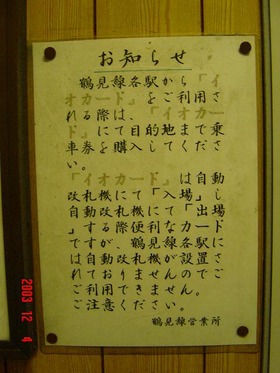 お知らせ
鶴見線各駅から「イ
オカード」をご利用さ
れる際は、「イオカー
ド」にて目的地まで乗
車券を購入してくださ
い。
「イオカード」は自動
改札機にて「入場」し
自動改札機にて「出場
」する際便利なカード
ですが、鶴見線各駅に
は自動改札機が設置さ
れておりませんのでご
ご利用できません。
ご注意ください。
鶴見線営業所
2003 12 4